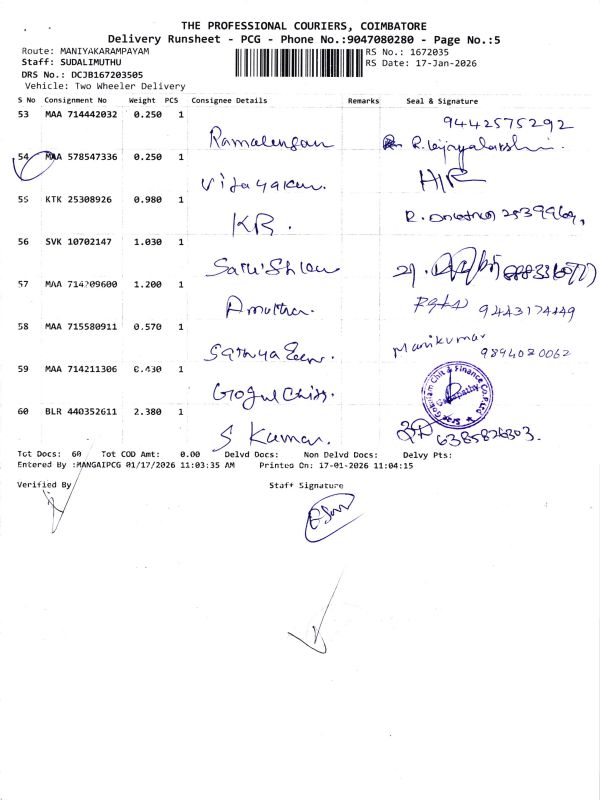 THE PROFESSIONAL COURIERS, COIMBATORE
Delivery Runsheet - PCG - Phone No.:9047080280 - Page No.:5
Route: MANIYAKARAMPAYAM RS No.: 1672035
Staff: SUDALIMUTHU RS Date: 17-Jan-2026
DRS No.: DCJB167203505
Vehicle: Two Wheeler Delivery
S No Consignment No Weight PCS Consignee Details Remarks Seal & Signature
53 MAA 714442032 0.250 1
9442575292
Ramalengan
54 MAA 578547336 0.250 1
Vijayaken. H/R
55 KTK 25308926 0.980 1
KR.
56 SVK 10702147 1.030 1
57 MAA 714209600 1.200 1
Amutha. 9443174449
58 MAA 715580911 0.570 1
Manikumar
9894020062
59 MAA 714211306 0.430 1
60 BLR 440352611 2.380 1
S Kumar. 6385826803.
Tot Docs: 60 Tot COD Amt: 0.00 Delvd Docs: Non Delvd Docs: Delvy Pts:
Entered By :MANGAIPCG 01/17/2026 11:03:35 AM Printed On: 17-01-2026 11:04:15
Verified By Staff Signature